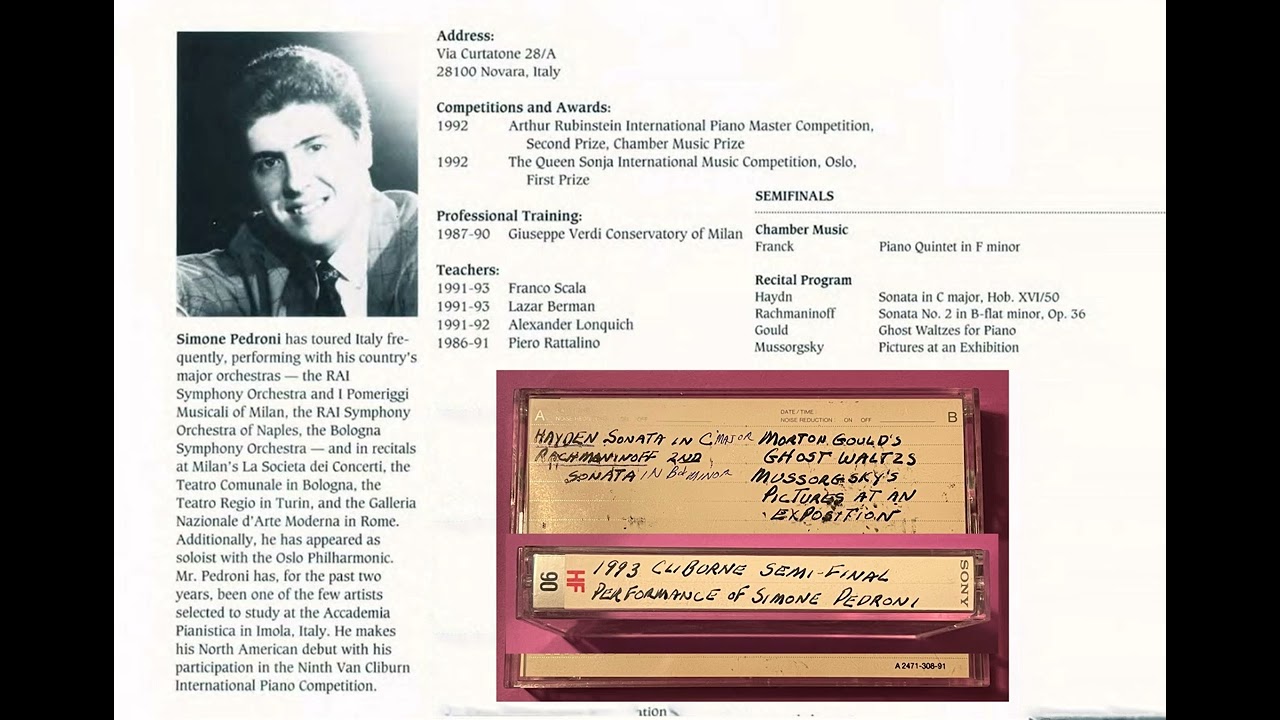 Simone Pedroni has toured Italy fre-
quently, performing with his country's
major orchestras — the RAI
Symphony Orchestra and I Pomeriggi
Musicali of Milan, the RAI Symphony
Orchestra of Naples, the Bologna
Symphony Orchestra — and in recitals
at Milan's La Societa dei Concerti, the
Teatro Comunale in Bologna, the
Teatro Regio in Turin, and the Galleria
Nazionale d'Arte Moderna in Rome.
Additionally, he has appeared as
soloist with the Oslo Philharmonic.
Mr. Pedroni has, for the past two
years, been one of the few artists
selected to study at the Accademia
Pianistica in Imola, Italy. He makes
his North American debut with his
participation in the Ninth Van Cliburn
International Piano Competition.
Address:
Via Curtatone 28/A
28100 Novara, Italy
Competitions and Awards:
1992 Arthur Rubinstein International Piano Master Competition,
Second Prize, Chamber Music Prize
1992 The Queen Sonja International Music Competition, Oslo,
First Prize
Professional Training:
1987-90 Giuseppe Verdi Conservatory of Milan
Teachers:
1991-93 Franco Scala
1991-93 Lazar Berman
1991-92 Alexander Lonquich
1986-91 Piero Rattalino
SEMIFINALS
Chamber Music
Franck Piano Quintet in F minor
Recital Program
Haydn Sonata in C major, Hob. XVI/50
Rachmaninoff Sonata No. 2 in B-flat minor, Op. 36
Gould Ghost Waltzes for Piano
Mussorgsky Pictures at an Exhibition
A
HAYDEN SONATA IN C MAJOR
RACHMANINOFF 2ND
SONATA IN B♭ MINOR
DATE/TIME
NOISE REDUCTION ON OFF
B
MORTON GOULD'S
GHOST WALTZS
MUSSORGSKY'S
PICTURES AT AN
EXPOSITION
90 HF
1993 CLIBORNE SEMI-FINAL
PERFORMANCE OF SIMONE PEDRONI
SONY
A 2471-308-91